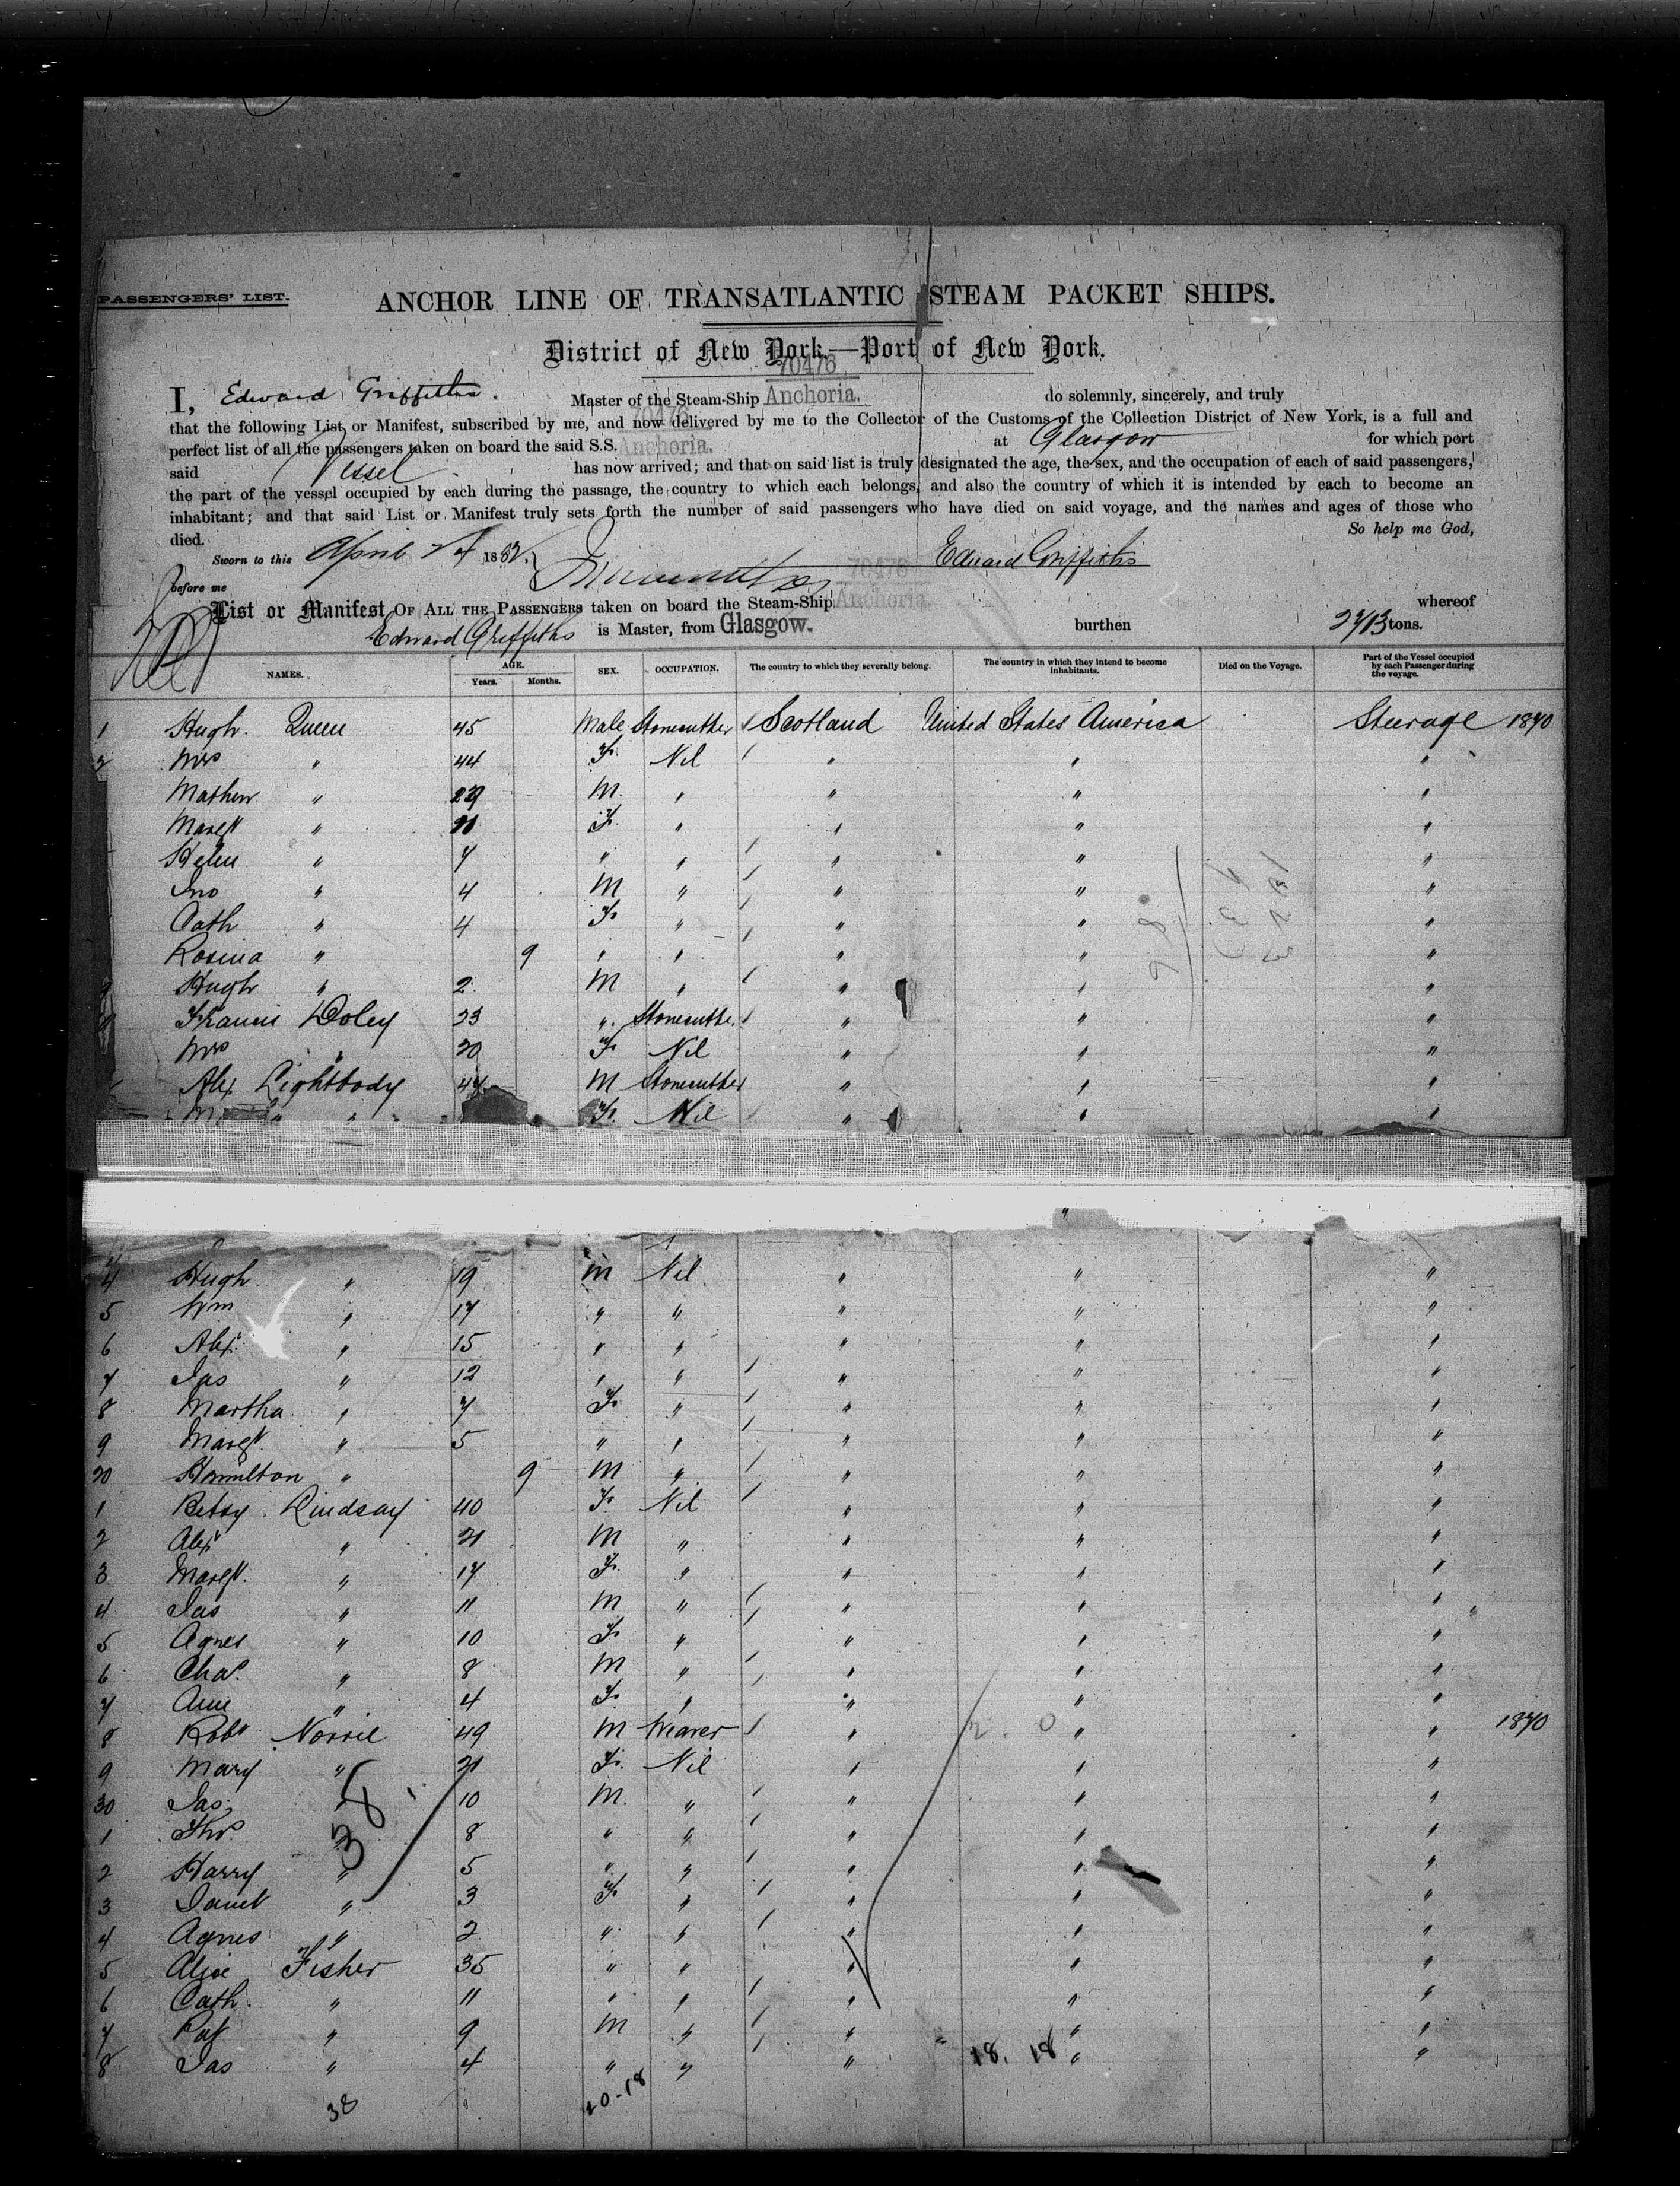 PASSENGERS' LIST.
ANCHOR LINE OF TRANSATLANTIC STEAM PACKET SHIPS.
District of New York.—Port of New York.
70476
I, Edward Griffiths. Master of the Steam-Ship Anchoria. do solemnly, sincerely, and truly
70476
that the following List or Manifest, subscribed by me, and now delivered by me to the Collector of the Customs of the Collection District of New York, is a full and
perfect list of all the passengers taken on board the said S.S. Anchoria. at Glasgow for which port
said Vessel has now arrived; and that on said list is truly designated the age, the sex, and the occupation of each of said passengers,
the part of the vessel occupied by each during the passage, the country to which each belongs, and also the country of which it is intended by each to become an
inhabitant; and that said List or Manifest truly sets forth the number of said passengers who have died on said voyage, and the names and ages of those who
died. So help me God,
Sworn to this April 188 Edward Griffiths
before me 70476
List or Manifest OF ALL THE PASSENGERS taken on board the Steam-Ship Anchoria. whereof
Edward Griffiths is Master, from Glasgow. burthen 2713 tons.
NAMES. AGE. Years. Months. SEX. OCCUPATION. The country to which they severally belong. The country in which they intend to become inhabitants. Died on the Voyage. Part of the Vessel occupied by each Passenger during the voyage.
1 Hugh Queen 45 Male Stonecutter Scotland United States America Steerage 1870
2 Mrs " 44 F. Nil " " "
Mathew " M. " " " "
Margt " F. " " " "
Helen " 7 " " " " "
Jno " 4 M " " " "
Cath " 4 F. " " " "
Rosina " 9 " " " " "
Hugh " 2 M " " " "
Francis Doley 23 " Stonecutter " " "
Mrs " 20 F. Nil " " "
Alex Lightbody 44 M Stonecutter " " "
" F. Nil " " "
4 Hugh " 19 M Nil " " "
5 Wm " 17 " " " " "
6 Alex. " 15 " " " " "
7 Jas " 12 " " " " "
8 Martha " 7 F. " " " "
9 Margt. " 5 " " " " "
20 Hamilton " 9 M " " " "
1 Betsy Lindsay 40 F. Nil " " "
2 Alex " 21 M " " " "
3 Margt. " 17 F. " " " "
4 Jas " 11 M " " " "
5 Agnes " 10 F. " " " "
6 Chas. " 8 M " " " "
7 Ann " 4 F. " " " "
8 Robt Norrie 49 M Weaver " " " 1870
9 Mary " 21 F. Nil " " "
30 Jas. " 10 M. " " " "
1 Thos. " 8 " " " " "
2 Harry " 5 " " " " "
3 Janet " 3 F. " " " "
4 Agnes " 2 " " " " "
5 Alice Fisher 35 " " " " "
6 Cath. " 11 " " " " "
7 Pat " 9 M " " " "
8 Jas " 4 " " " " "
38
18. 18
38
20-18